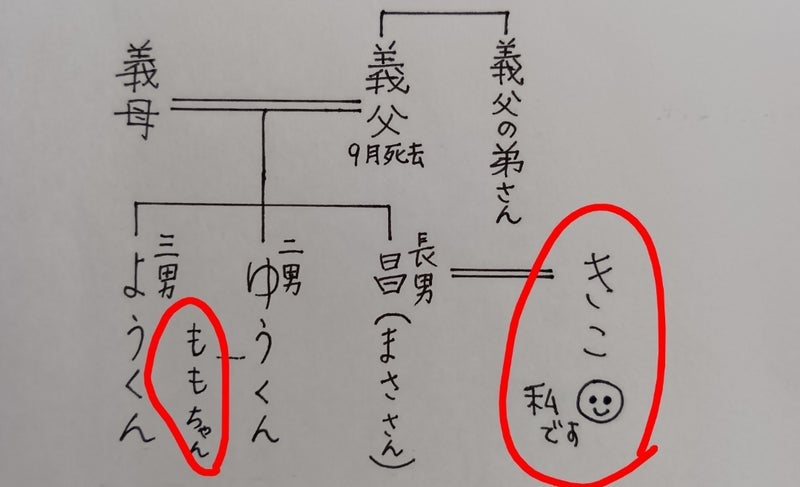 義母
義父
9月死去
義父の弟さん
三男
ようくん
ももちゃん
二男
ゆうくん
長男
昌(まささん)
きこ
私です